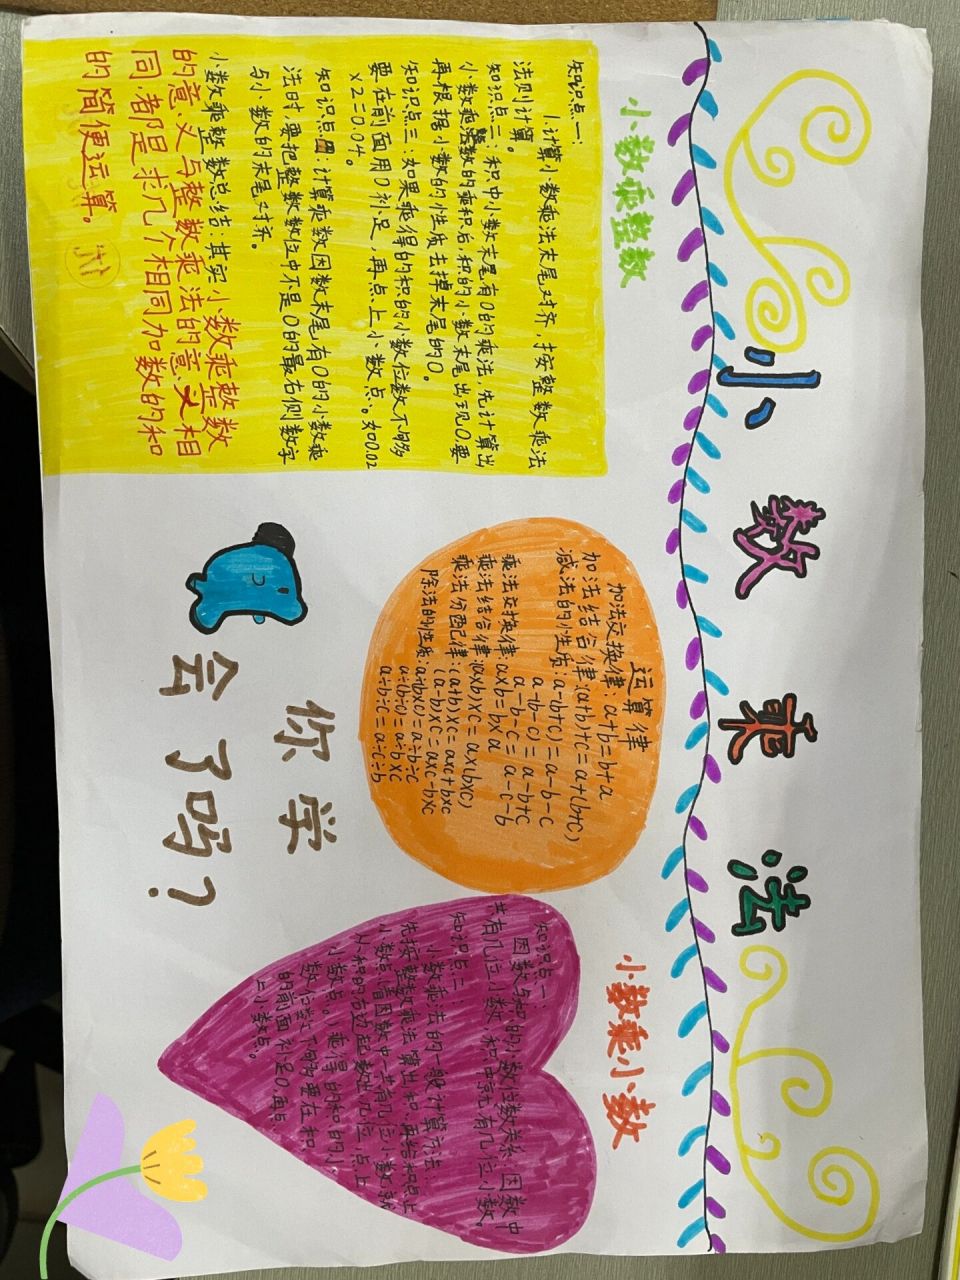 小数乘法
小数乘整数
知识点一：
1.计算小数乘法末尾对齐，按整数乘法
法则计算。
知识点二：积中小数末尾有0的乘法，先计算出
小数乘整数的乘积后，积的小数末尾出现0，要
再根据小数的性质去掉末尾的0。
知识点三：如果乘得的积的小数位数不够
要在前面用0补足，再点上小数点。如0.02
×2=0.04。
知识点四：计算乘数因数末尾有0的小数乘
法时，要把整数数位中不是0的最右侧数字
与小数的末尾对齐。
小数乘整数总结：其实小数乘整数
的意义与整数乘法的意义相
同，都是求几个相同加数的和
的简便运算。
运算律
加法交换律：a+b=b+a
加法结合律：(a+b)+c=a+(b+c)
减法的性质：a-(b+c)=a-b-c
a-(b-c)=a-b+c
a-b-c=a-c-b
乘法交换律：a×b=b×a
乘法结合律：(a×b)×c=a×(b×c)
乘法分配律：(a+b)×c=a×c+b×c
(a-b)×c=a×c-b×c
除法的性质：a÷(b×c)=a÷b÷c
a÷(b÷c)=a÷b×c
a÷b÷c=a÷c÷b
你学
会了吗？
小数乘小数
知识点一：
因数与积的小数位数关系：因数中
共有几位小数，积中就有几位小数。
知识点二：
小数乘法的一般计算方法：
先按整数乘法算出积，再给积点上
小数点（看因数中一共有几位小数，就
从积的右边起数出几位，点上
小数点。）乘得的积的小
数位数不够要在积
的前面补足0，再点
上小数点。